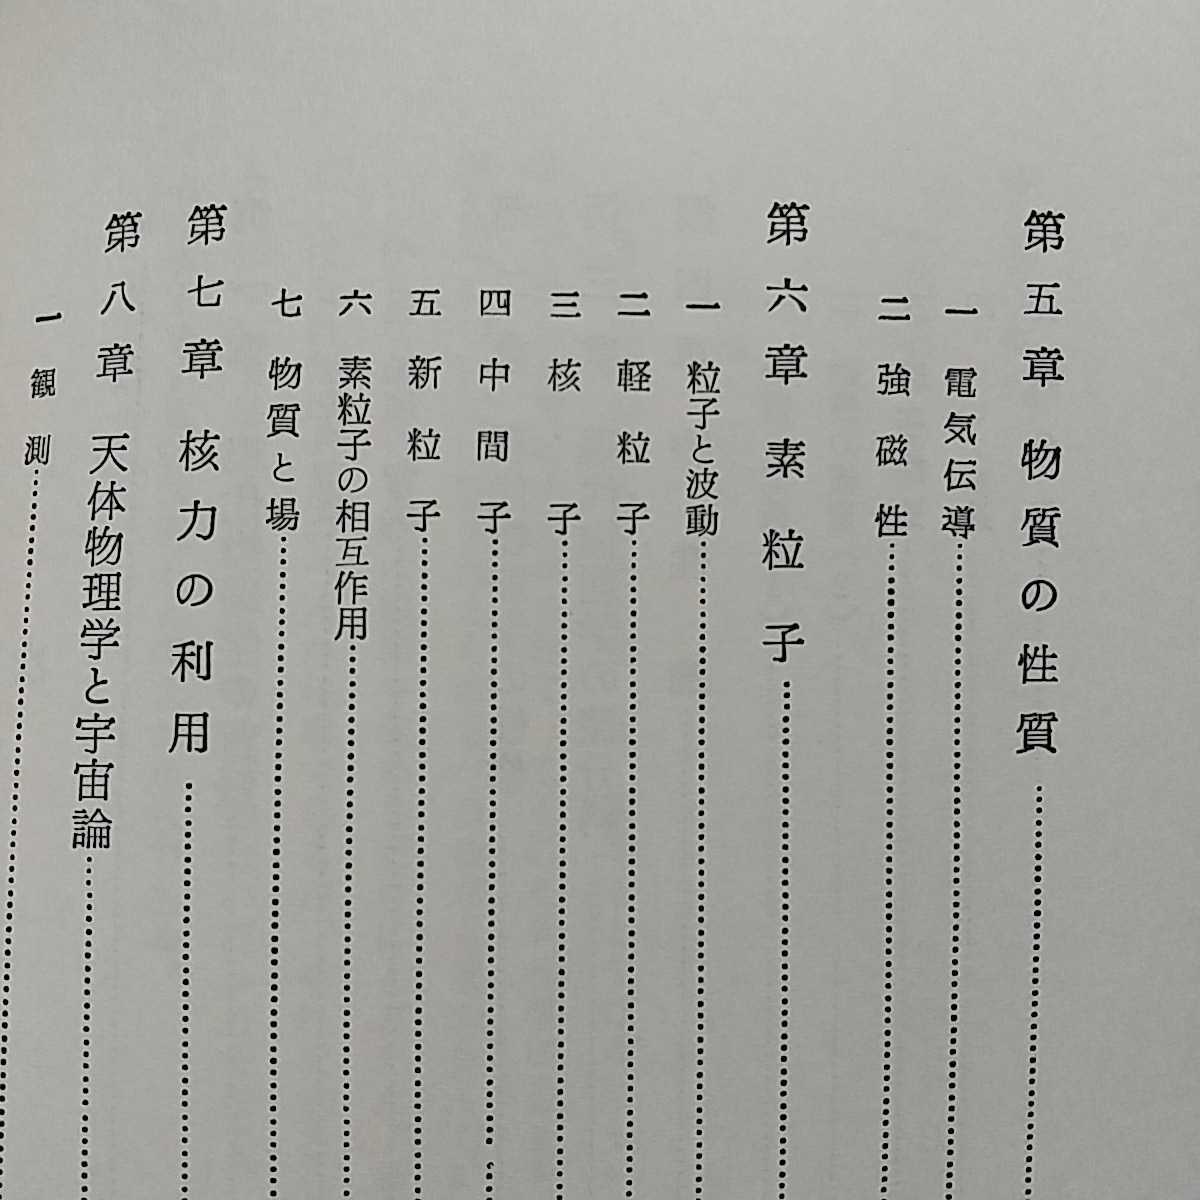 第五章 物質の性質
一 電気伝導
二 強磁性
第六章 素粒子
一 粒子と波動
二 軽粒子
三 核子
四 中間子
五 新粒子
六 素粒子の相互作用
七 物質と場
第七章 核力の利用
第八章 天体物理学と宇宙論
一 観測